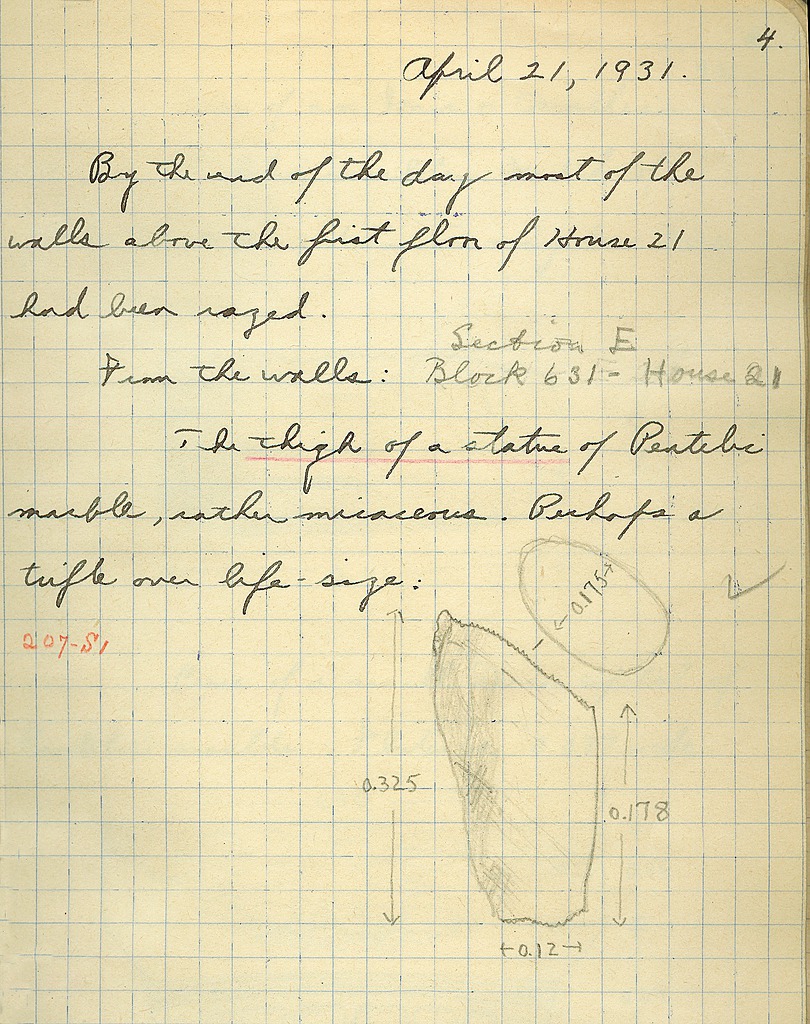 4.
April 21, 1931.
By the end of the day most of the
walls above the first floor of House 21
had been razed.
Section E
From the walls: Block 631 - House 21
The thigh of a statue of Pentelic
marble, rather micaceous. Perhaps a
trifle over life-size:
0.175
207-S1
0.325
0.178
0.12